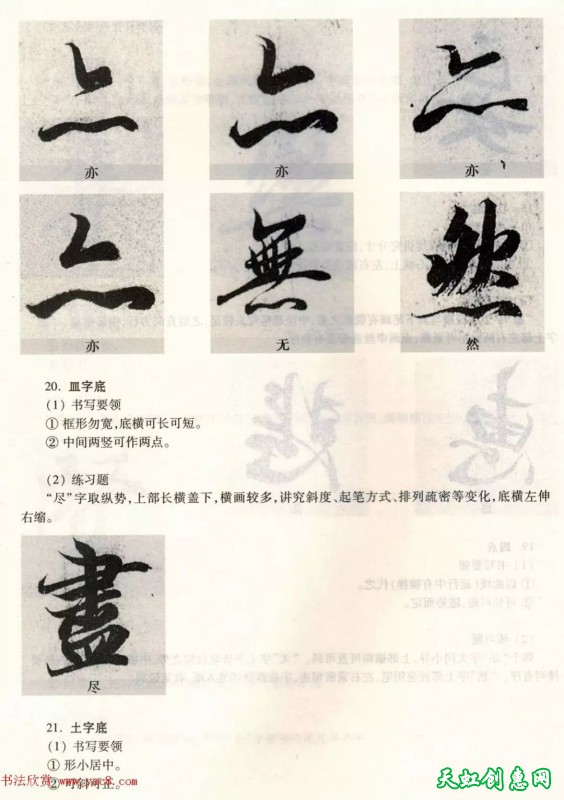 亦 亦 亦
亦 无 然
20. 皿字底
(1) 书写要领
① 框形勿宽,底横可长可短。
② 中间两竖可作两点。
(2) 练习题
“尽”字取纵势,上部长横盖下,横画较多,讲究斜度、起笔方式、排列疏密等变化,底横左伸
右缩。
盡
尽
21. 土字底
(1) 书写要领
① 形小居中。
② 可斜可正。
书法欣赏 www.yac8.com
天虹创意网